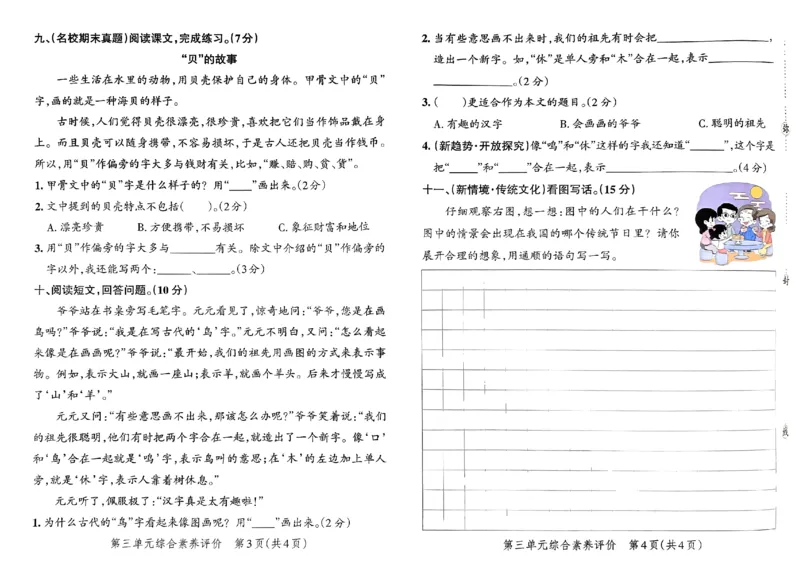 九、(名校期末真题)阅读课文,完成练习。(7分)
“贝”的故事
一些生活在水里的动物,用贝壳保护自己的身体。甲骨文中的“贝”
字,画的就是一种海贝的样子。
古时候,人们觉得贝壳很漂亮,很珍贵,喜欢把它们当作饰品戴在身
上。而且贝壳可以随身携带,不容易损坏,于是古人还把贝壳当作钱币。
所以,用“贝”作偏旁的字大多与钱财有关,比如,“赚、赔、购、贫、货”。
1. 甲骨文中的“贝”字是什么样子的? 用“____”画出来。(2分)
2. 文中提到的贝壳特点不包括( )。(2分)
A. 漂亮珍贵 B. 方便携带,不易损坏 C. 象征财富和地位
3. 用“贝”作偏旁的字大多与________有关。除文中介绍的“贝”作偏旁的
字以外,我还能写两个:______、______。(3分)
十、阅读短文,回答问题。(10分)
爷爷站在书桌旁写毛笔字。元元看见了,惊奇地问:“爷爷,您是在画
鸟吗?”爷爷说:“我是在写古代的‘鸟’字。”元元不明白,又问:“怎么看起
来像是在画画呢?”爷爷说:“最开始,我们的祖先用画图的方式来表示事
物。例如,表示大山,就画一座山;表示羊,就画个羊头。后来才慢慢写成
了‘山’和‘羊’。”
元元又问:“有些意思画不出来,那该怎么办呢?”爷爷笑着说:“我们
的祖先很聪明,他们有时把两个字合在一起,就造出了一个新字。像‘口’
和‘鸟’合在一起就是‘鸣’字,表示鸟叫的意思;在‘木’的左边加上单人
旁,就是‘休’字,表示人靠着树休息。”
元元听了,佩服极了:“汉字真是太有趣啦!”
1. 为什么古代的“鸟”字看起来像图画呢? 用“____”画出来。(2分)
第三单元综合素养评价 第3页(共4页)
2. 当有些意思画不出来时,我们的祖先有时会把________________,
造出一个新字。如,“休”是单人旁和“木”合在一起,表示____________
______________。(2分)
3. ( )更适合作为本文的题目。(2分)
A. 有趣的汉字 B. 会画画的爷爷 C. 聪明的祖先
4. (新趋势·开放探究)像“鸣”和“休”这样的字我还知道“______”,这个字是
把“_____”和“_____”合在一起,表示______________________。(4分)
十一、(新情境·传统文化)看图写话。(15分)
仔细观察右图,想一想:图中的人们在干什么?
图中的情景会出现在我国的哪个传统节日里? 请你
展开合理的想象,用通顺的语句写一写。
第三单元综合素养评价 第4页(共4页)
封
线